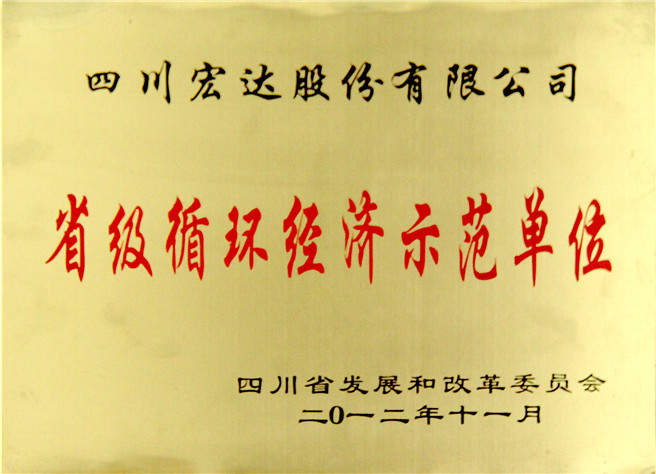 四川宏达股份有限公司
省级循环经济示范单位
四川省发展和改革委员会
二0一二年十一月